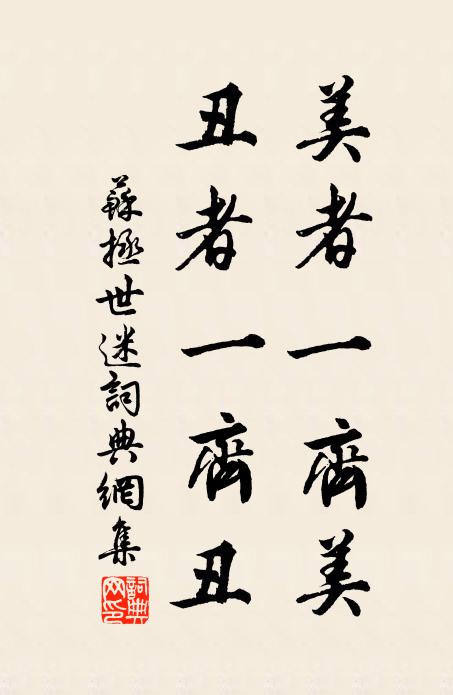 美者一齊美
丑者一齊丑
蘇拯世迷詞典網集
詞典網印